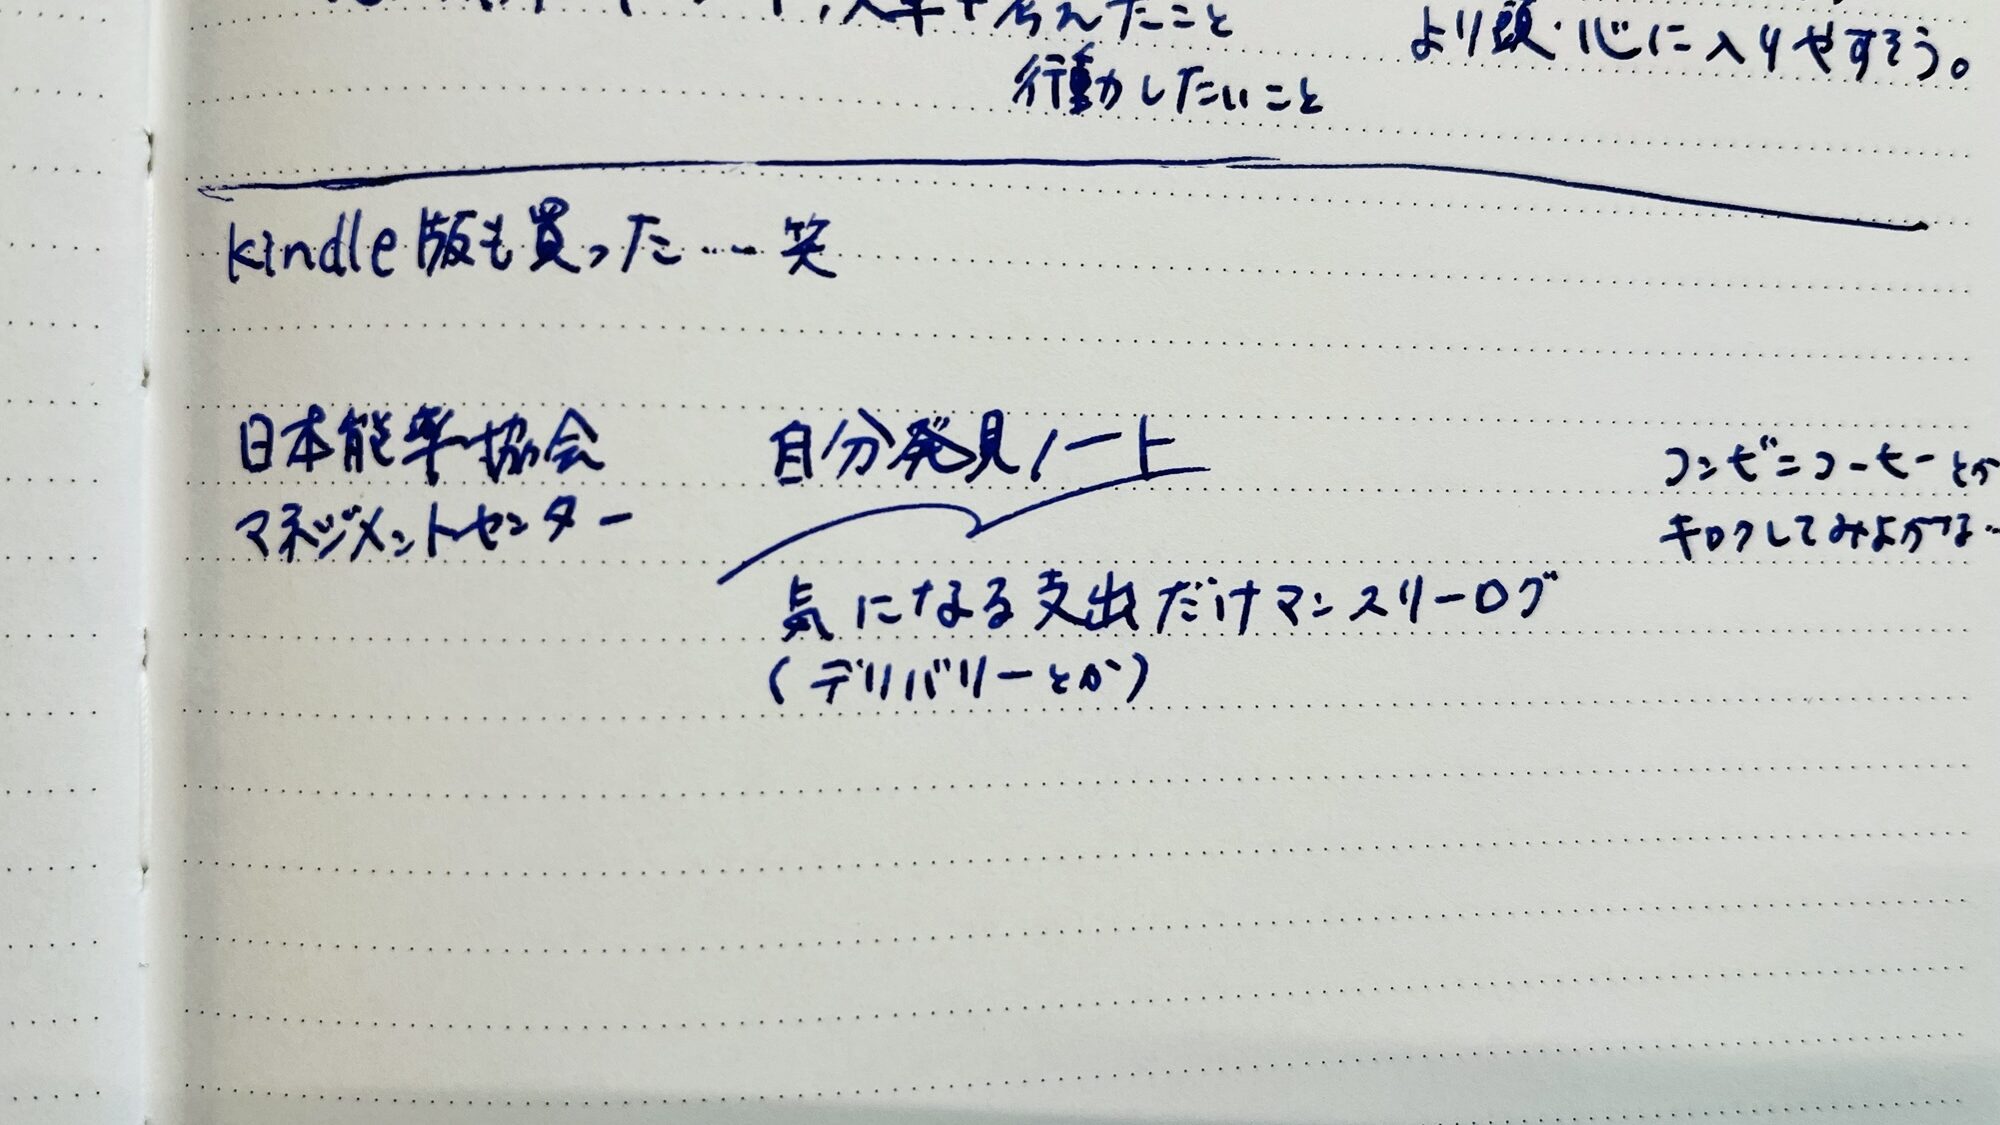 考えたこと
行動したいこと
より頭・心に入りやすそう。
kindle版も買った…笑
日本能率協会
マネジメントセンター
自分発見ノート
気になる支出だけマンスリーログ
(デリバリーとか)
コンビニコーヒーとか
キロクしてみようかな…